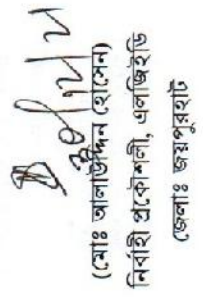 (মোঃ আলাউদ্দিন হোসেন)
নির্বাহী প্রকৌশলী, এলজিইডি
জেলাঃ জয়পুরহাট